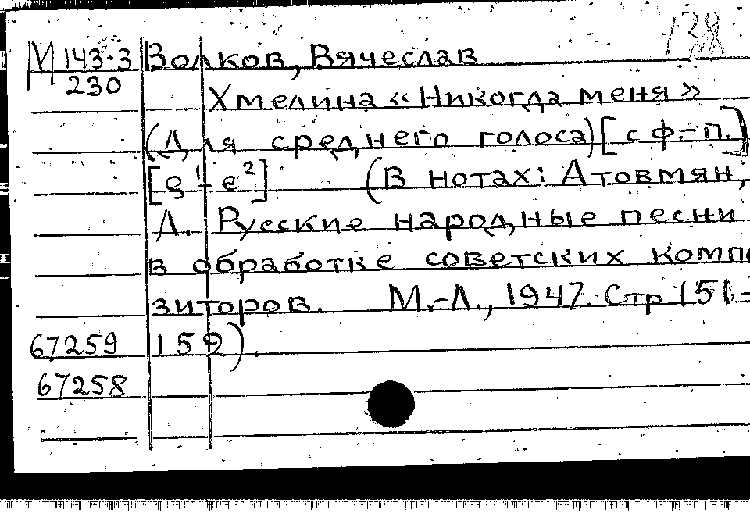 138
М 143-3 Волков, Вячеслав
230
Хмелина «Никогда меня»
(Для среднего голоса) [с ф.-п.]
[e¹-e²] (В нотах: Атовмян,
Л. Русские народные песни
в обработке советских компо
зиторов. М.-Л., 1947. Стр 151-
67259 159).
67258